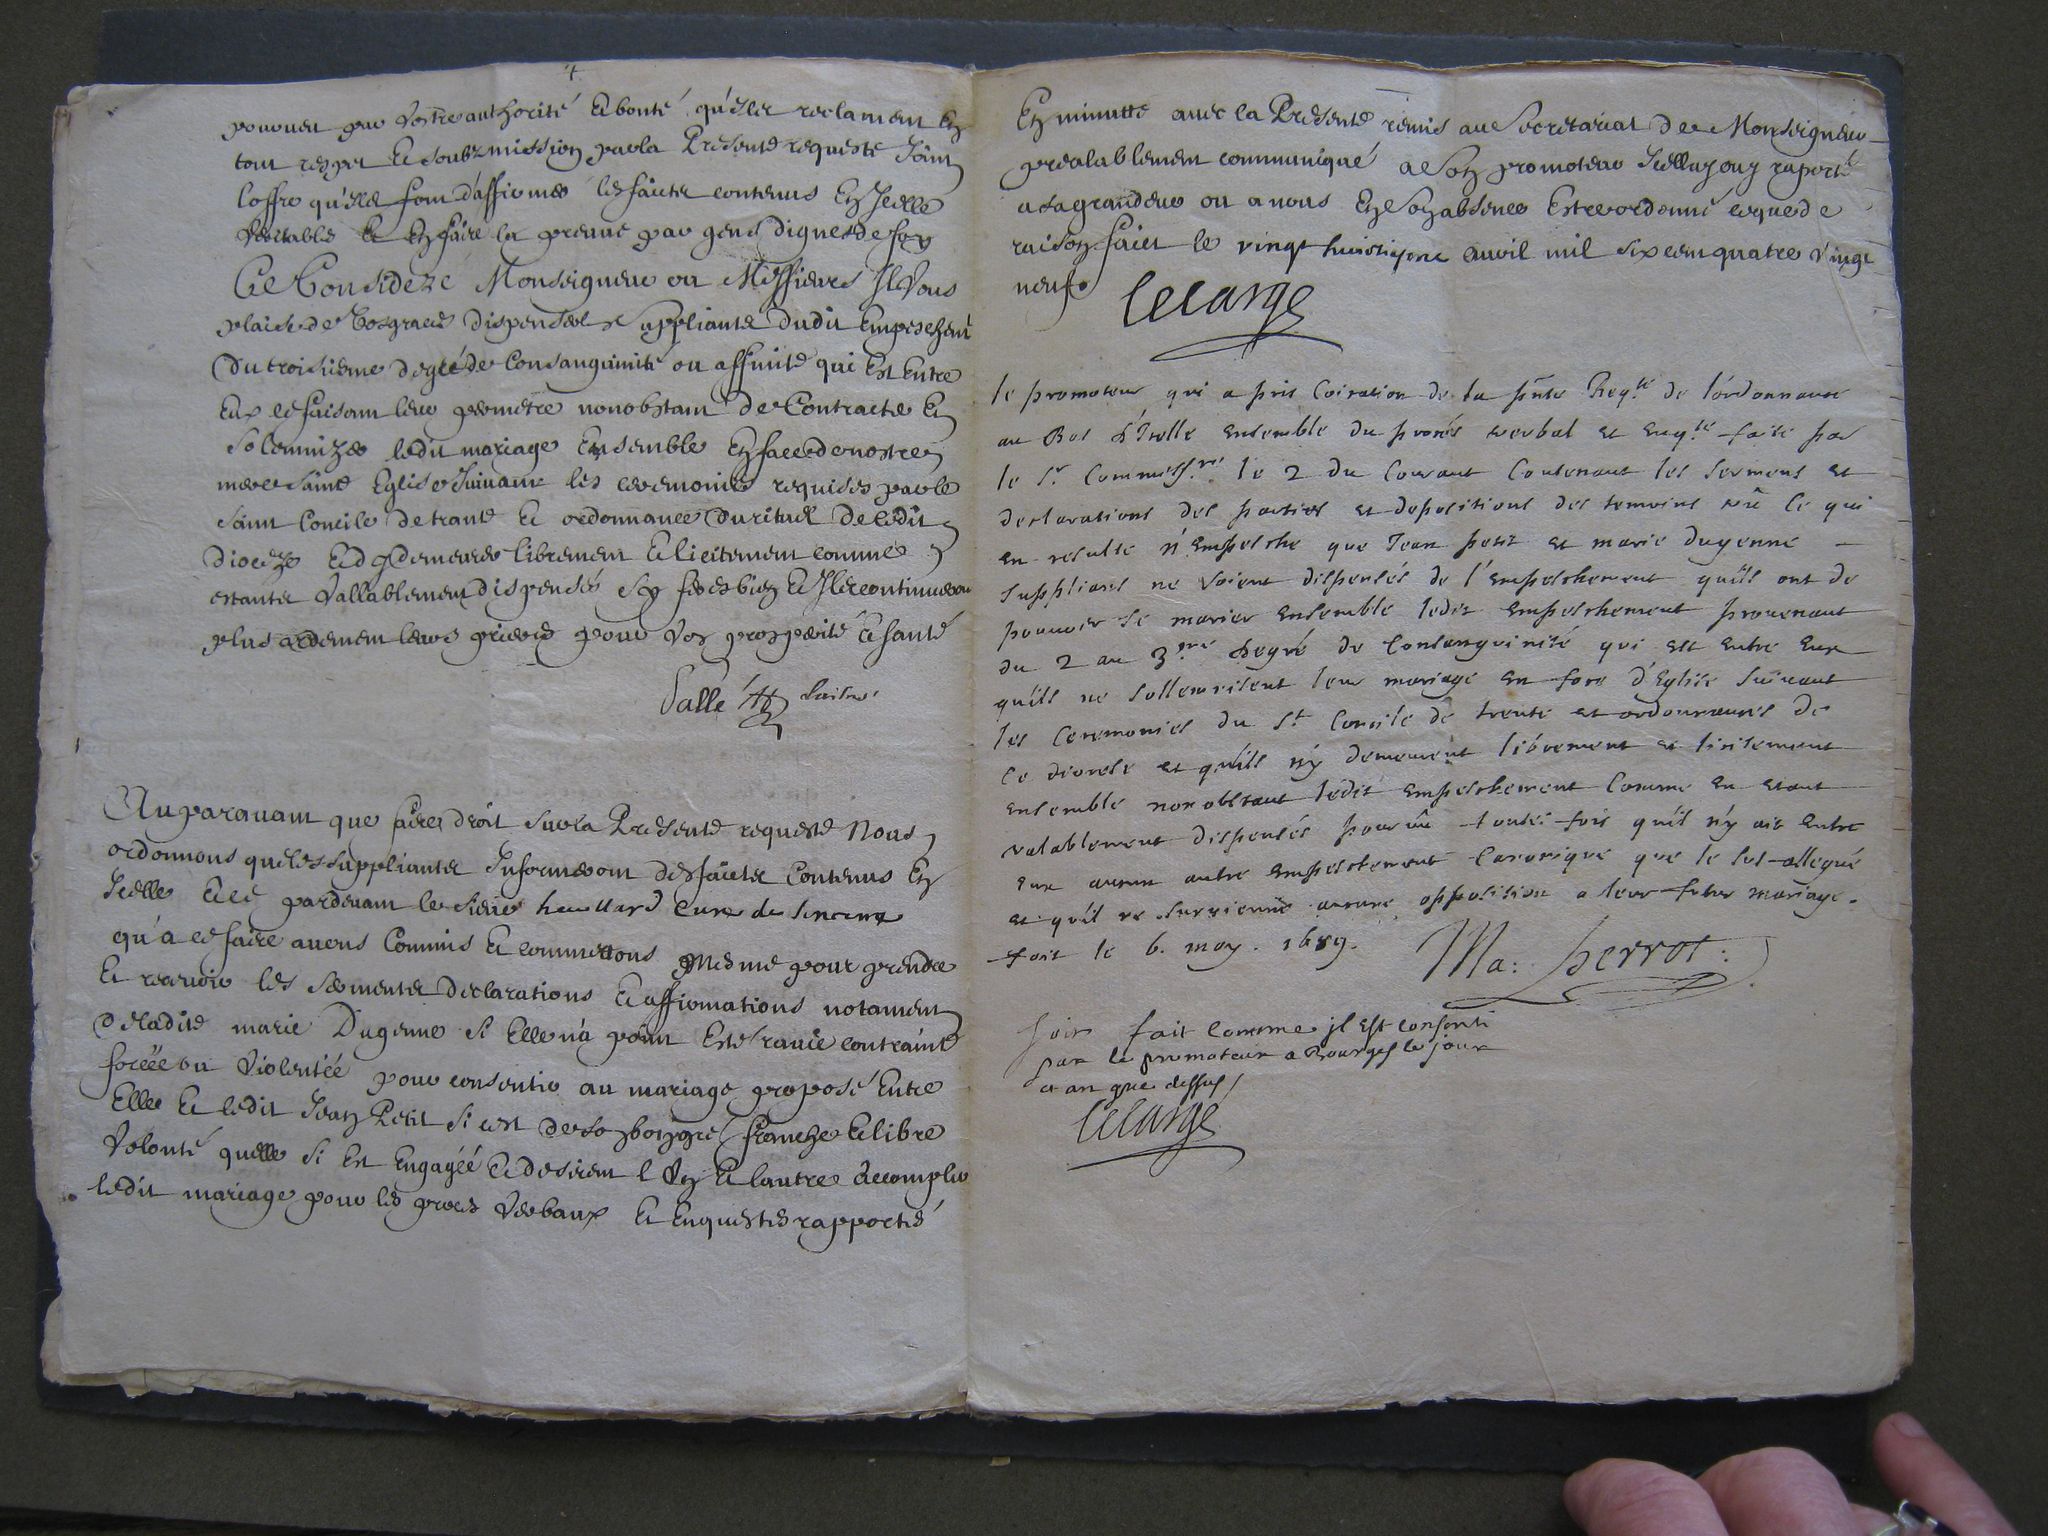 4
pouvoir par vostre authorité et bonté qu'ils reclament En
tout respet et soubzmission par la Presente requeste Joint
l'offre qu'ils font d'affirmer les faicts contenus En Jcelle
veritable et En faire la preuve par gens dignes de foy
Ce Consideré Monseigneur ou Messieurs Il Vous
plaise de vos graces dispenser les suppliants dudit Empeschemt
Du troisieme degré de Consanguinité ou affinité qui Est Entre
Eux et faisant leur permetre nonobstant de Contracter Et
solemnizer ledit mariage Ensemble En face de nostre
mere sainte Eglise suivant les ceremonies requises par le
saint Concile de trante et ordonnance du rituel de cedit
diocese et d'y demeurer librement et licitement comme
estants vallablement dispensés sy ferés bien et Ils continueront
plus ardement leurs prieres pour vos prosperité et santé
Sallé
Auparavant que faire droit sur la Presente requeste Nous
ordonnons que les suppliants Informeront des faicts Contenus En
Jcelle et ce pardevant le sieur heullard curé de
qu'a ce faire avons Commis et commettons mesme pour prendre
Et recevoir les serments declarations et affirmations notament
de ladite marie Dugenne si Elle n'a point Esté ravie contrainte
forcée ou violentée pour consentir au mariage proposé Entre
Elle et ledit Jean Petit si c'est de son bon gré franche et libre
volonté quelle si est Engagéé et desirent l'Un et lautre accomplir
ledit mariage pour les proces verbaux et Enquestes rapportés
En minutte avec la Presente remis au Secretariat de Monseigneur
prealablement communiqué a son promoteur Icelluy ouy raporté
a sa grandeur ou a nous En son absence Estre ordonné ce que de
raison faict le vingt huictiesme avril mil six cent quatre vingt
neuf
Lelarge
le promoteur qui a pris Coication de la pnte Reqte de l'ordonnance
au Bas d'Icelle ensemble du procés verbal et enqte faite par
le Sr Commissre le 2 du Courant Contenant les sermens et
declarations des parties et depositions des temoins vû ce qui
en resulte n'empesche que Jean petit et marie dugenne
supplians ne soient dispensés de l'empeschement qu'ils ont de
pouvoir se marier ensemble ledit empeschement provenant
du 2 au 3me degré de Consanguinité qui est entre eux
qu'ils ne sollemnisent leur mariage en face d'Eglise suivant
les Ceremonies du St Concile de trente et ordonnances de
ce diocese et qu'ils n'y demeurent librement et licitement
ensemble nonobstant ledit empeschement Comme en etant
valablement dispensés pourvû toutes fois qu'il n'y ait entre
eux aucun autre empeschement Canonique que le sus allegué
et qu'il ne survienne aucune opposition a leur futur mariage.
fait le 6. may. 1689.
Ma: perrot:
soit fait comme jl est consenti
par le promoteur a Bourges le jour
et an que dessus
Lelarge